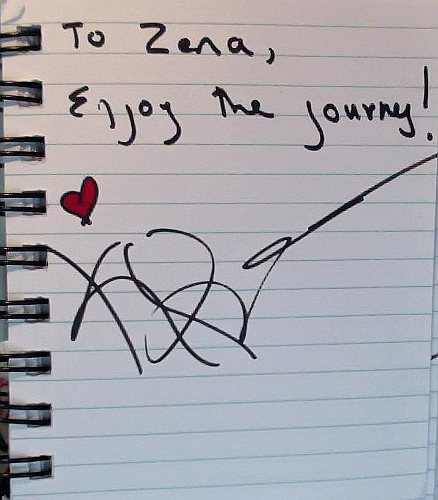 To Zena,
Enjoy the journey!